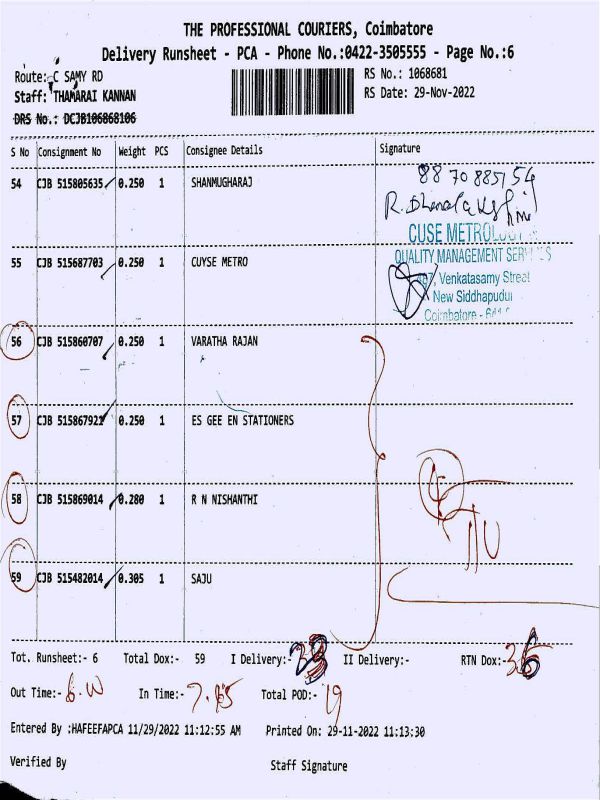 THE PROFESSIONAL COURIERS, Coimbatore
Delivery Runsheet - PCA - Phone No.:0422-3505555 - Page No.:6
Route: C SAMY RD
RS No.: 1068681
Staff: THAMARAI KANNAN
RS Date: 29-Nov-2022
DRS No.: DCJB106868106
S No Consignment No Weight PCS Consignee Details Signature
54 CJB 515805635 0.250 1 SHANMUGHARAJ
8870885154
55 CJB 515687703 0.250 1 CUYSE METRO
CUSE METROLOGY
QUALITY MANAGEMENT
Venkatasamy Street
New Siddhapudur
Coimbatore -
56 CJB 515860707 0.250 1 VARATHA RAJAN
57 CJB 515867921 0.250 1 ES GEE EN STATIONERS
58 CJB 515869014 0.280 1 R N NISHANTHI
59 CJB 515482014 0.305 1 SAJU
Tot. Runsheet:- 6 Total Dox:- 59 I Delivery:- II Delivery:- RTN Dox:- 36
Out Time:- In Time:- Total POD:- 19
Entered By :HAFEEFAPCA 11/29/2022 11:12:55 AM Printed On: 29-11-2022 11:13:30
Verified By Staff Signature